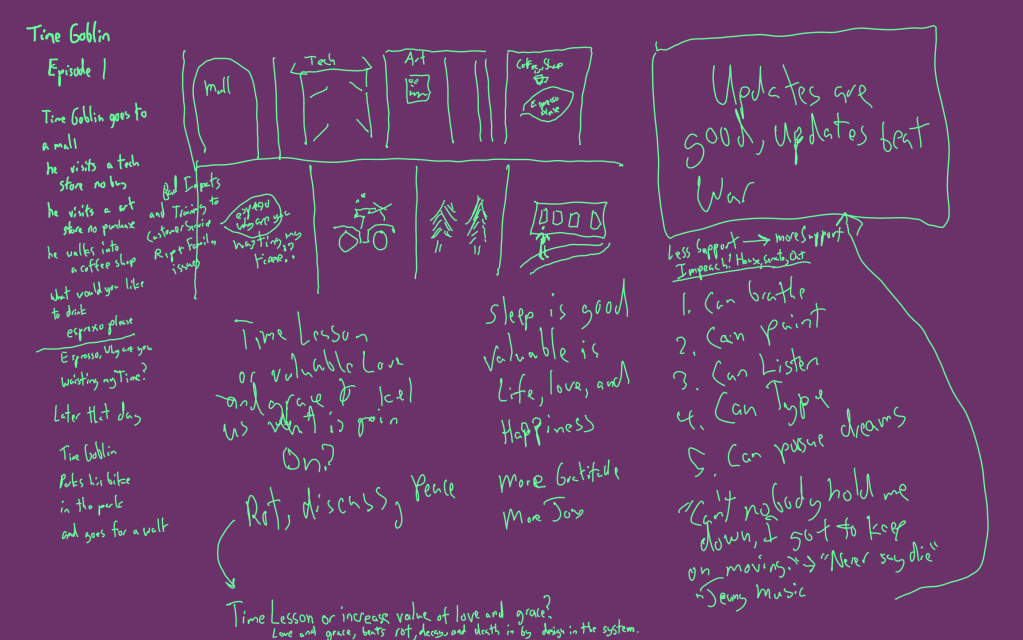 Time Goblin
Episode 1
Time Goblin goes to
a mall
he visits a tech
store no buy
he visits a art
store no purchase
he walks into
a coffee shop
what would you like
to drink
espresso please
Espresso, why are you
waisting my Time?
Later that day
Time Goblin
Parks his bike
in the park
and goes for a walk
Mall
Tech
Art
Coffee Shop
Espresso
please
Bad Impacts
and Training to
Customer Service
Ript Family
issues
why are you
wasting my
time??
Time Lesson
or valuable Love
and grace
us what is goin
On?
Rot, discuss, Peace
Sleep is good
Valuable is
Life, love, and
Happiness
More Gratitude
More Joy
Time Lesson or increase value of love and grace?
Love and grace, beats rot, decay, and death in by design in the system.
Updates are
good, updates beat
War
Less Support → more Support
Impeach! House, Senate, Out
1. Can breathe
2. Can paint
3. Can Listen
4. Can Type
5. Can pursue dreams
"Can't nobody hold me
down, I got to keep
on moving." → "Never say die"
Music